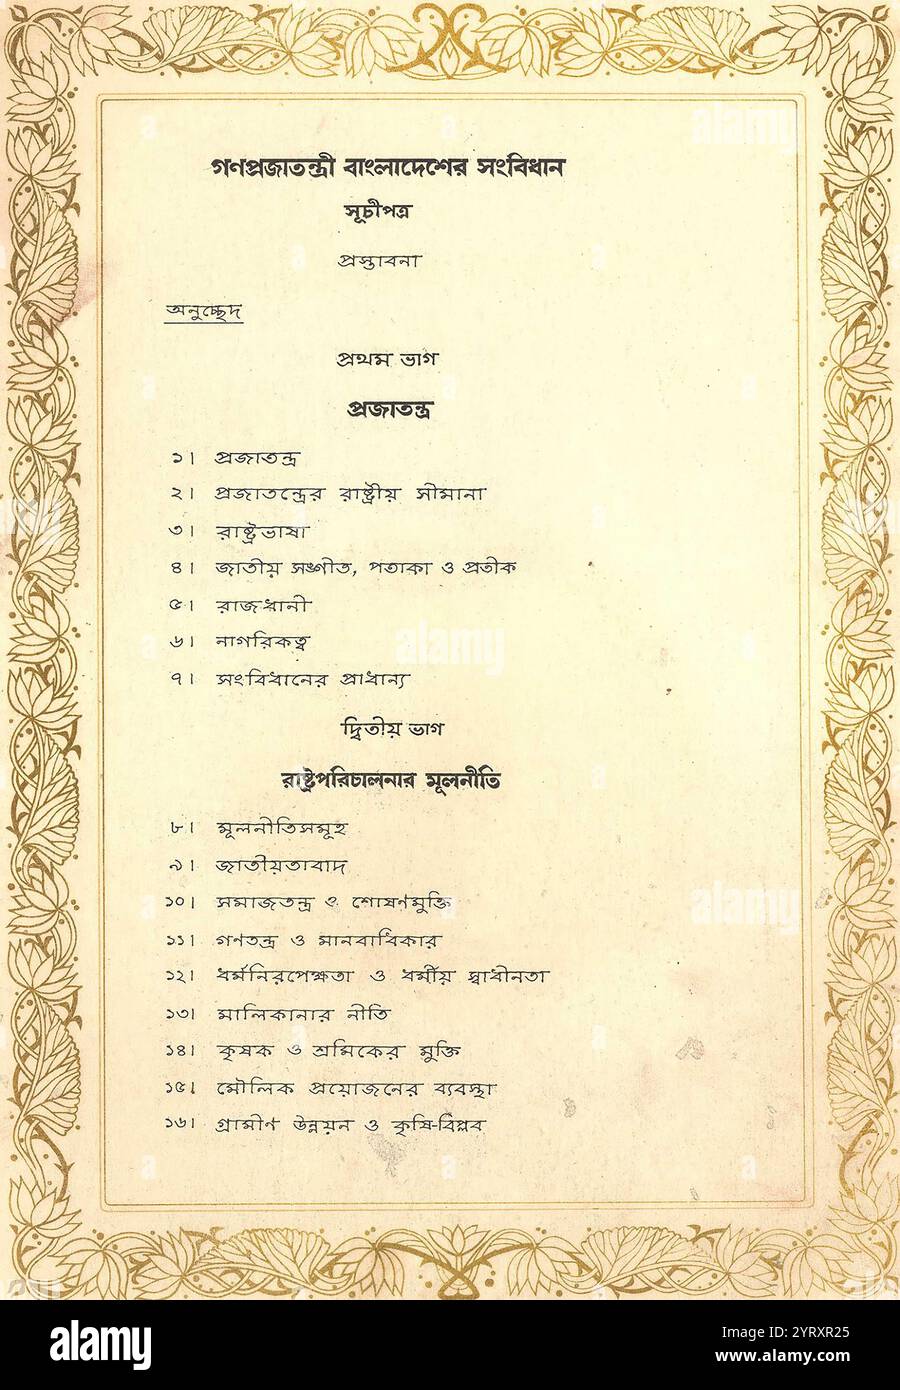 গণপ্রজাতন্ত্রী বাংলাদেশের সংবিধান
সূচীপত্র
প্রস্তাবনা
অনুচ্ছেদ
প্রথম ভাগ
প্রজাতন্ত্র
১। প্রজাতন্ত্র
২। প্রজাতন্ত্রের রাষ্ট্রীয় সীমানা
৩। রাষ্ট্রভাষা
৪। জাতীয় সঙ্গীত, পতাকা ও প্রতীক
৫। রাজধানী
৬। নাগরিকত্ব
৭। সংবিধানের প্রাধান্য
দ্বিতীয় ভাগ
রাষ্ট্রপরিচালনার মূলনীতি
৮। মূলনীতিসমূহ
৯। জাতীয়তাবাদ
১০। সমাজতন্ত্র ও শোষণমুক্তি
১১। গণতন্ত্র ও মানবাধিকার
১২। ধর্মনিরপেক্ষতা ও ধর্মীয় স্বাধীনতা
১৩। মালিকানার নীতি
১৪। কৃষক ও শ্রমিকের মুক্তি
১৫। মৌলিক প্রয়োজনের ব্যবস্থা
১৬। গ্রামীণ উন্নয়ন ও কৃষি-বিপ্লব
alamy
alamy
alamy
alamy
Image ID: 2YRXR25
www.alamy.com